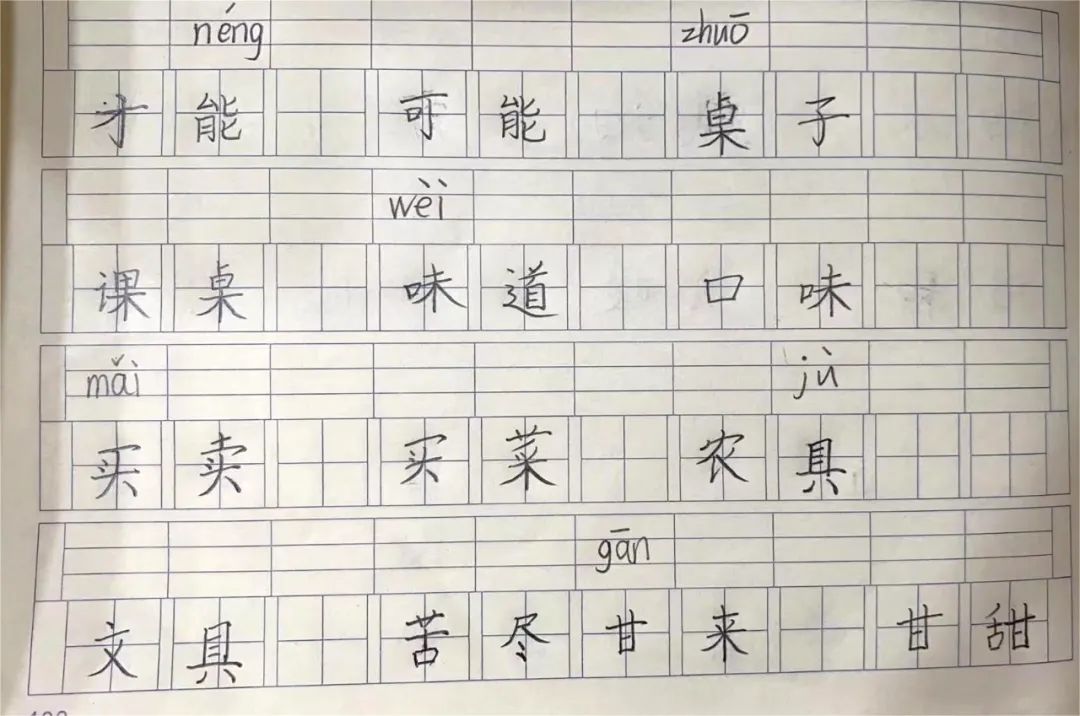 néng zhuō
才能 可能 桌子
wèi
课桌 味道 口味
mǎi jù
买卖 买菜 农具
gān
文具 苦尽甘来 甘甜